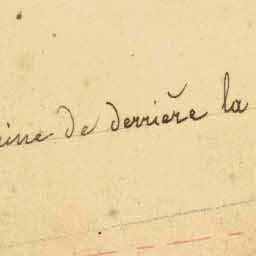 de derrière la